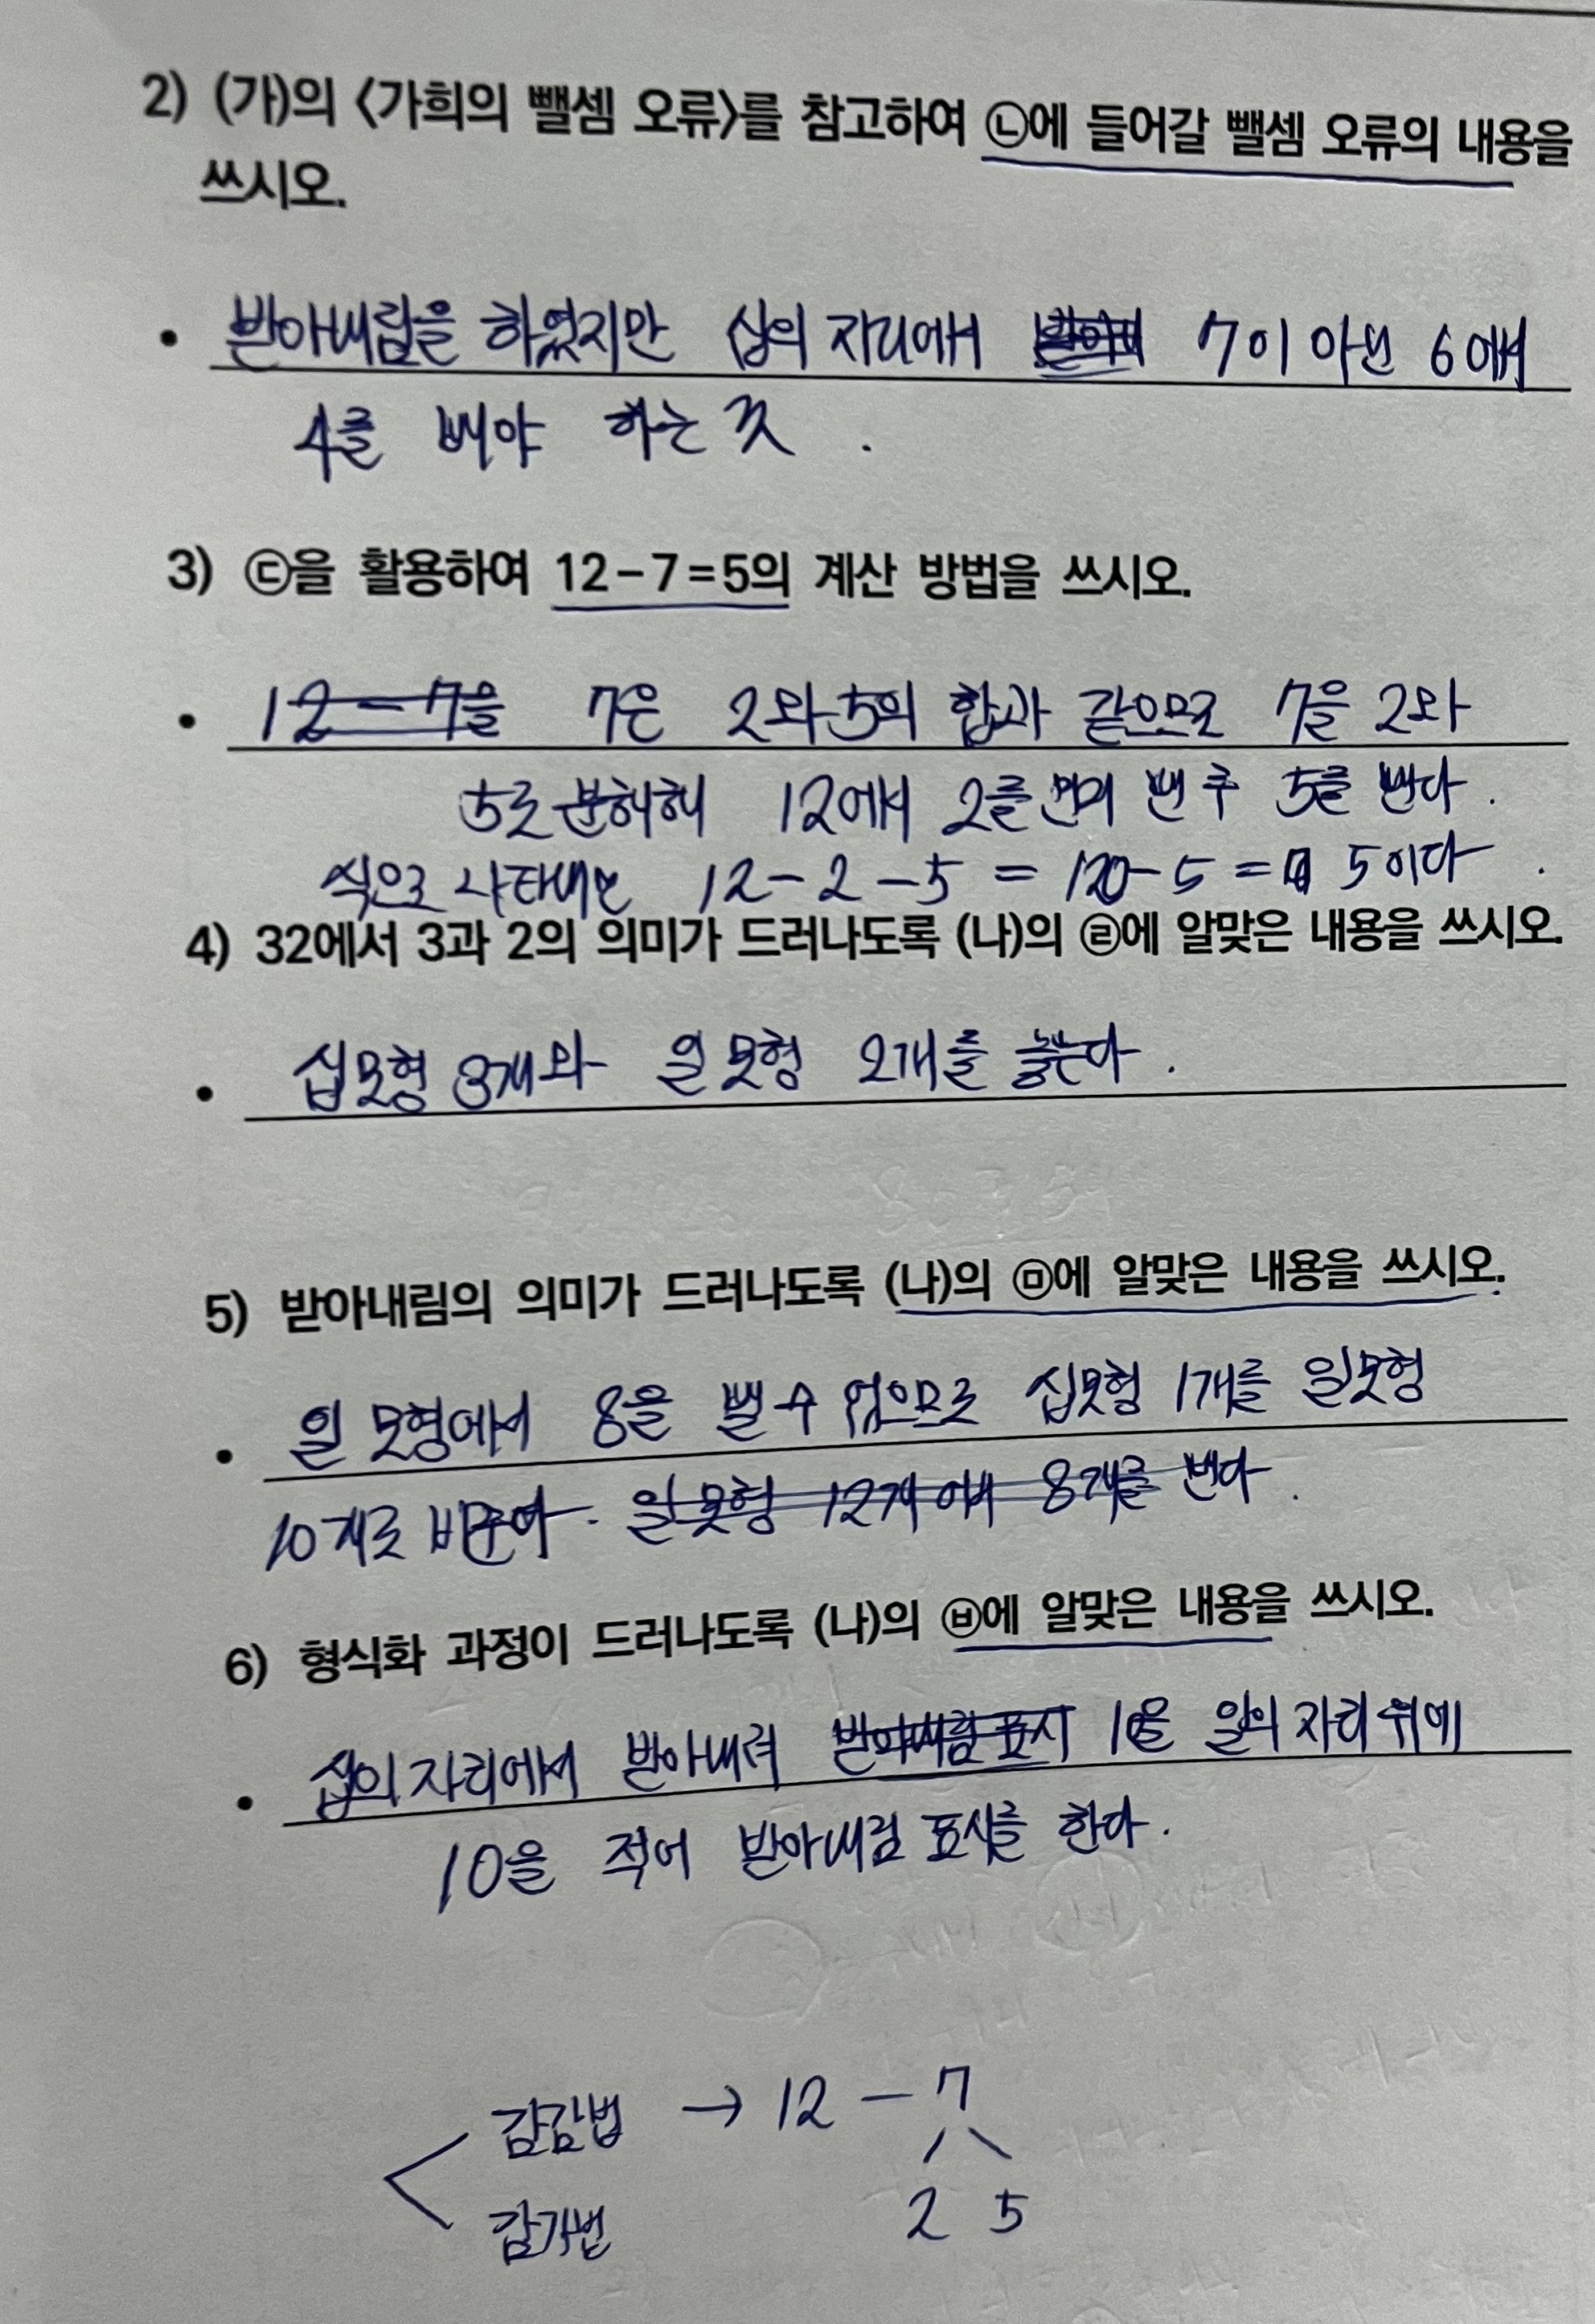 2) (가)의 <가희의 뺄셈 오류>를 참고하여 ㉡에 들어갈 뺄셈 오류의 내용을
쓰시오.
• 받아내림을 하였지만 십의 자리에서 7이 아닌 6에서
4를 빼야 하는 것.
3) ㉢을 활용하여 12-7=5의 계산 방법을 쓰시오.
• 12-7을 7은 2와 5의 합과 같으므로 7을 2와
5로 분해해 12에서 2를 먼저 뺀 후 5를 뺀다.
식으로 나타내면 12-2-5=10-5= 5이다.
4) 32에서 3과 2의 의미가 드러나도록 (나)의 ㉣에 알맞은 내용을 쓰시오.
• 십모형 3개와 일 모형 2개를 놓는다.
5) 받아내림의 의미가 드러나도록 (나)의 ㉤에 알맞은 내용을 쓰시오.
• 일 모형에서 8을 뺄 수 없으므로 십모형 1개를 일모형
10개로 바꾸어. 일 모형 12개에서 8개를 뺀다.
6) 형식화 과정이 드러나도록 (나)의 ㉥에 알맞은 내용을 쓰시오.
• 십의 자리에서 받아내려 받아내림 표시 10을 일의 자리 위에
10을 적어 받아내림 표시를 한다.
감감법 → 12 - 7
2 5
감가법